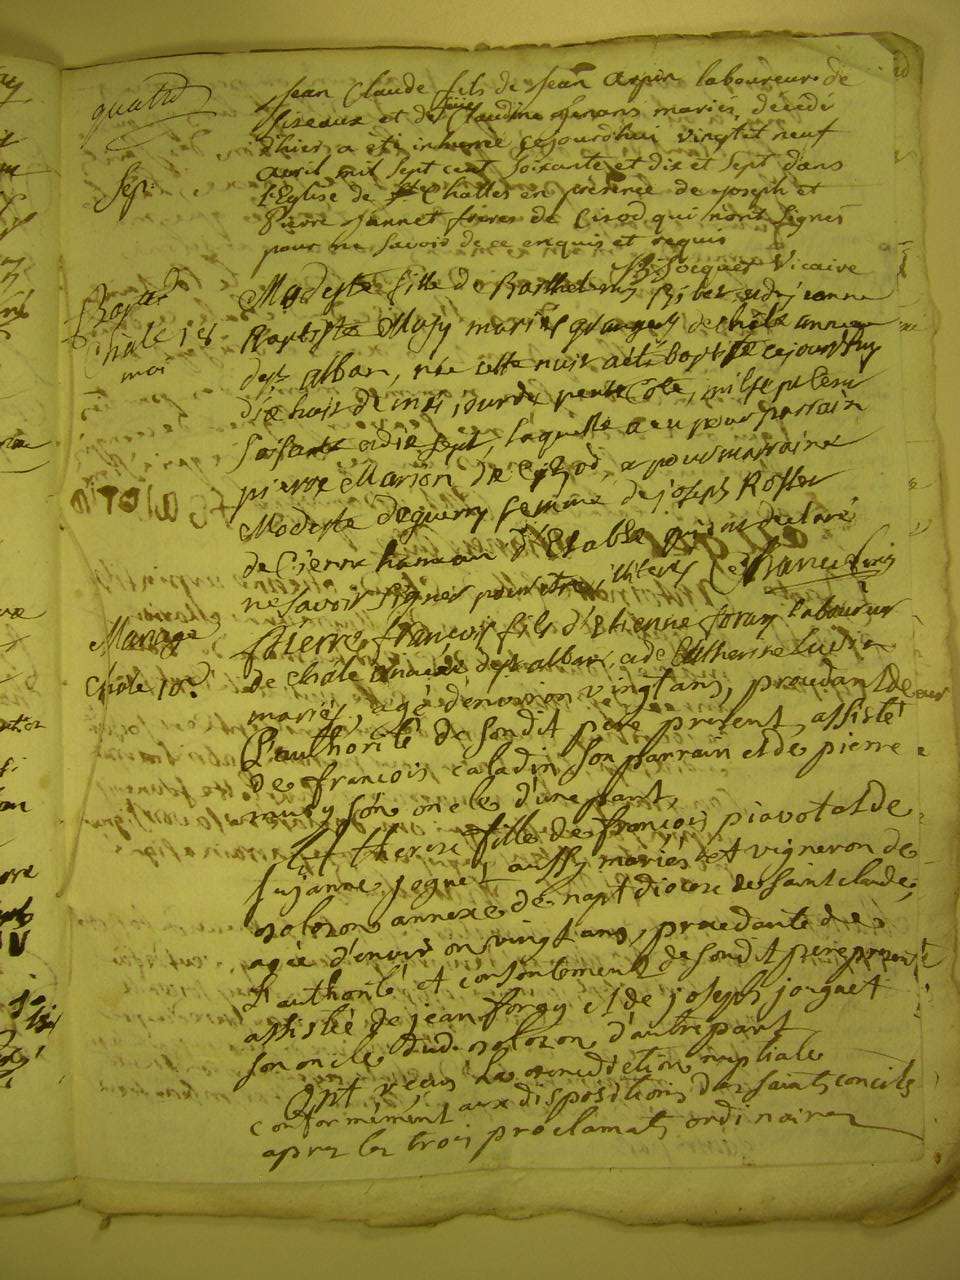 quatre
Sep.
Jean Claude fils de Jean Arpin laboureur de
Sizeaux et de Claudine Genans mariés, décédé
d'hier a eté inhumé cejourd'hui vingt et neuf
avril mil sept cent soixante et dix et sept dans
l'Eglise de Challes en présence de joseph et
Pierre Jannet freres de Cizod, qui n'ont signés
pour ne savoir de ce enquis et requis
Jacquet Vicaire
Bapt
Chale 18
mai
Modeste fille de Barthelemy Ribet et de jeanne
Baptiste Musy mariés de Chale annexe
de st alban, née cette nuit a eté baptisée cejourd'huy
dix huit de mai, jour de pentecôte, mil sept cent
soisante et dix sept, laquelle a eu pour parrain
pierre Marion de Cizod, a pour marraine
Modeste Deguerry femme de joseph Rosset
de Cienne hameau d'Etable qui ont declaré
ne savoir signer pour etre illiteres
Mariage
Chale 10e
pierre françois fils d'Etienne foray laboureur
de chale annexe de st alban, et de Catherine Ludin
mariés, agé d'environ vingt ans, procedant de
l'authorité de son dit pere present, assisté
de francois caladin son parrain et de pierre
son oncle d'une part,
Et therese fille de françois piavotal de
sujanne jegnet aussy mariés et vigneron de
soloson annexe de napt diocese de saint claude,
agée d'environ vingt ans, procedante de
l'authorité et consentement de son dit pere present
assistée de jean foray et de joseph jouguet
son oncle dud. soloson d'autre part
Ont reçu la benediction nuptiale
conformément aux dispositions des saints conciles
apres les trois proclamats ordinaires